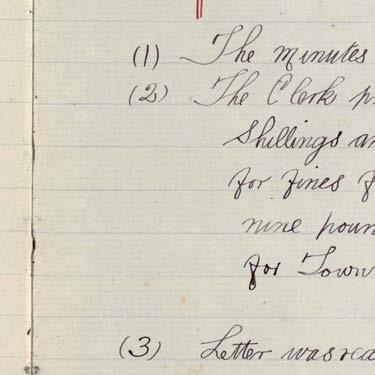 (1) The minutes
(2) The Clerk p
Shillings an
for fines f
nine poun
for Town
(3) Letter was rea